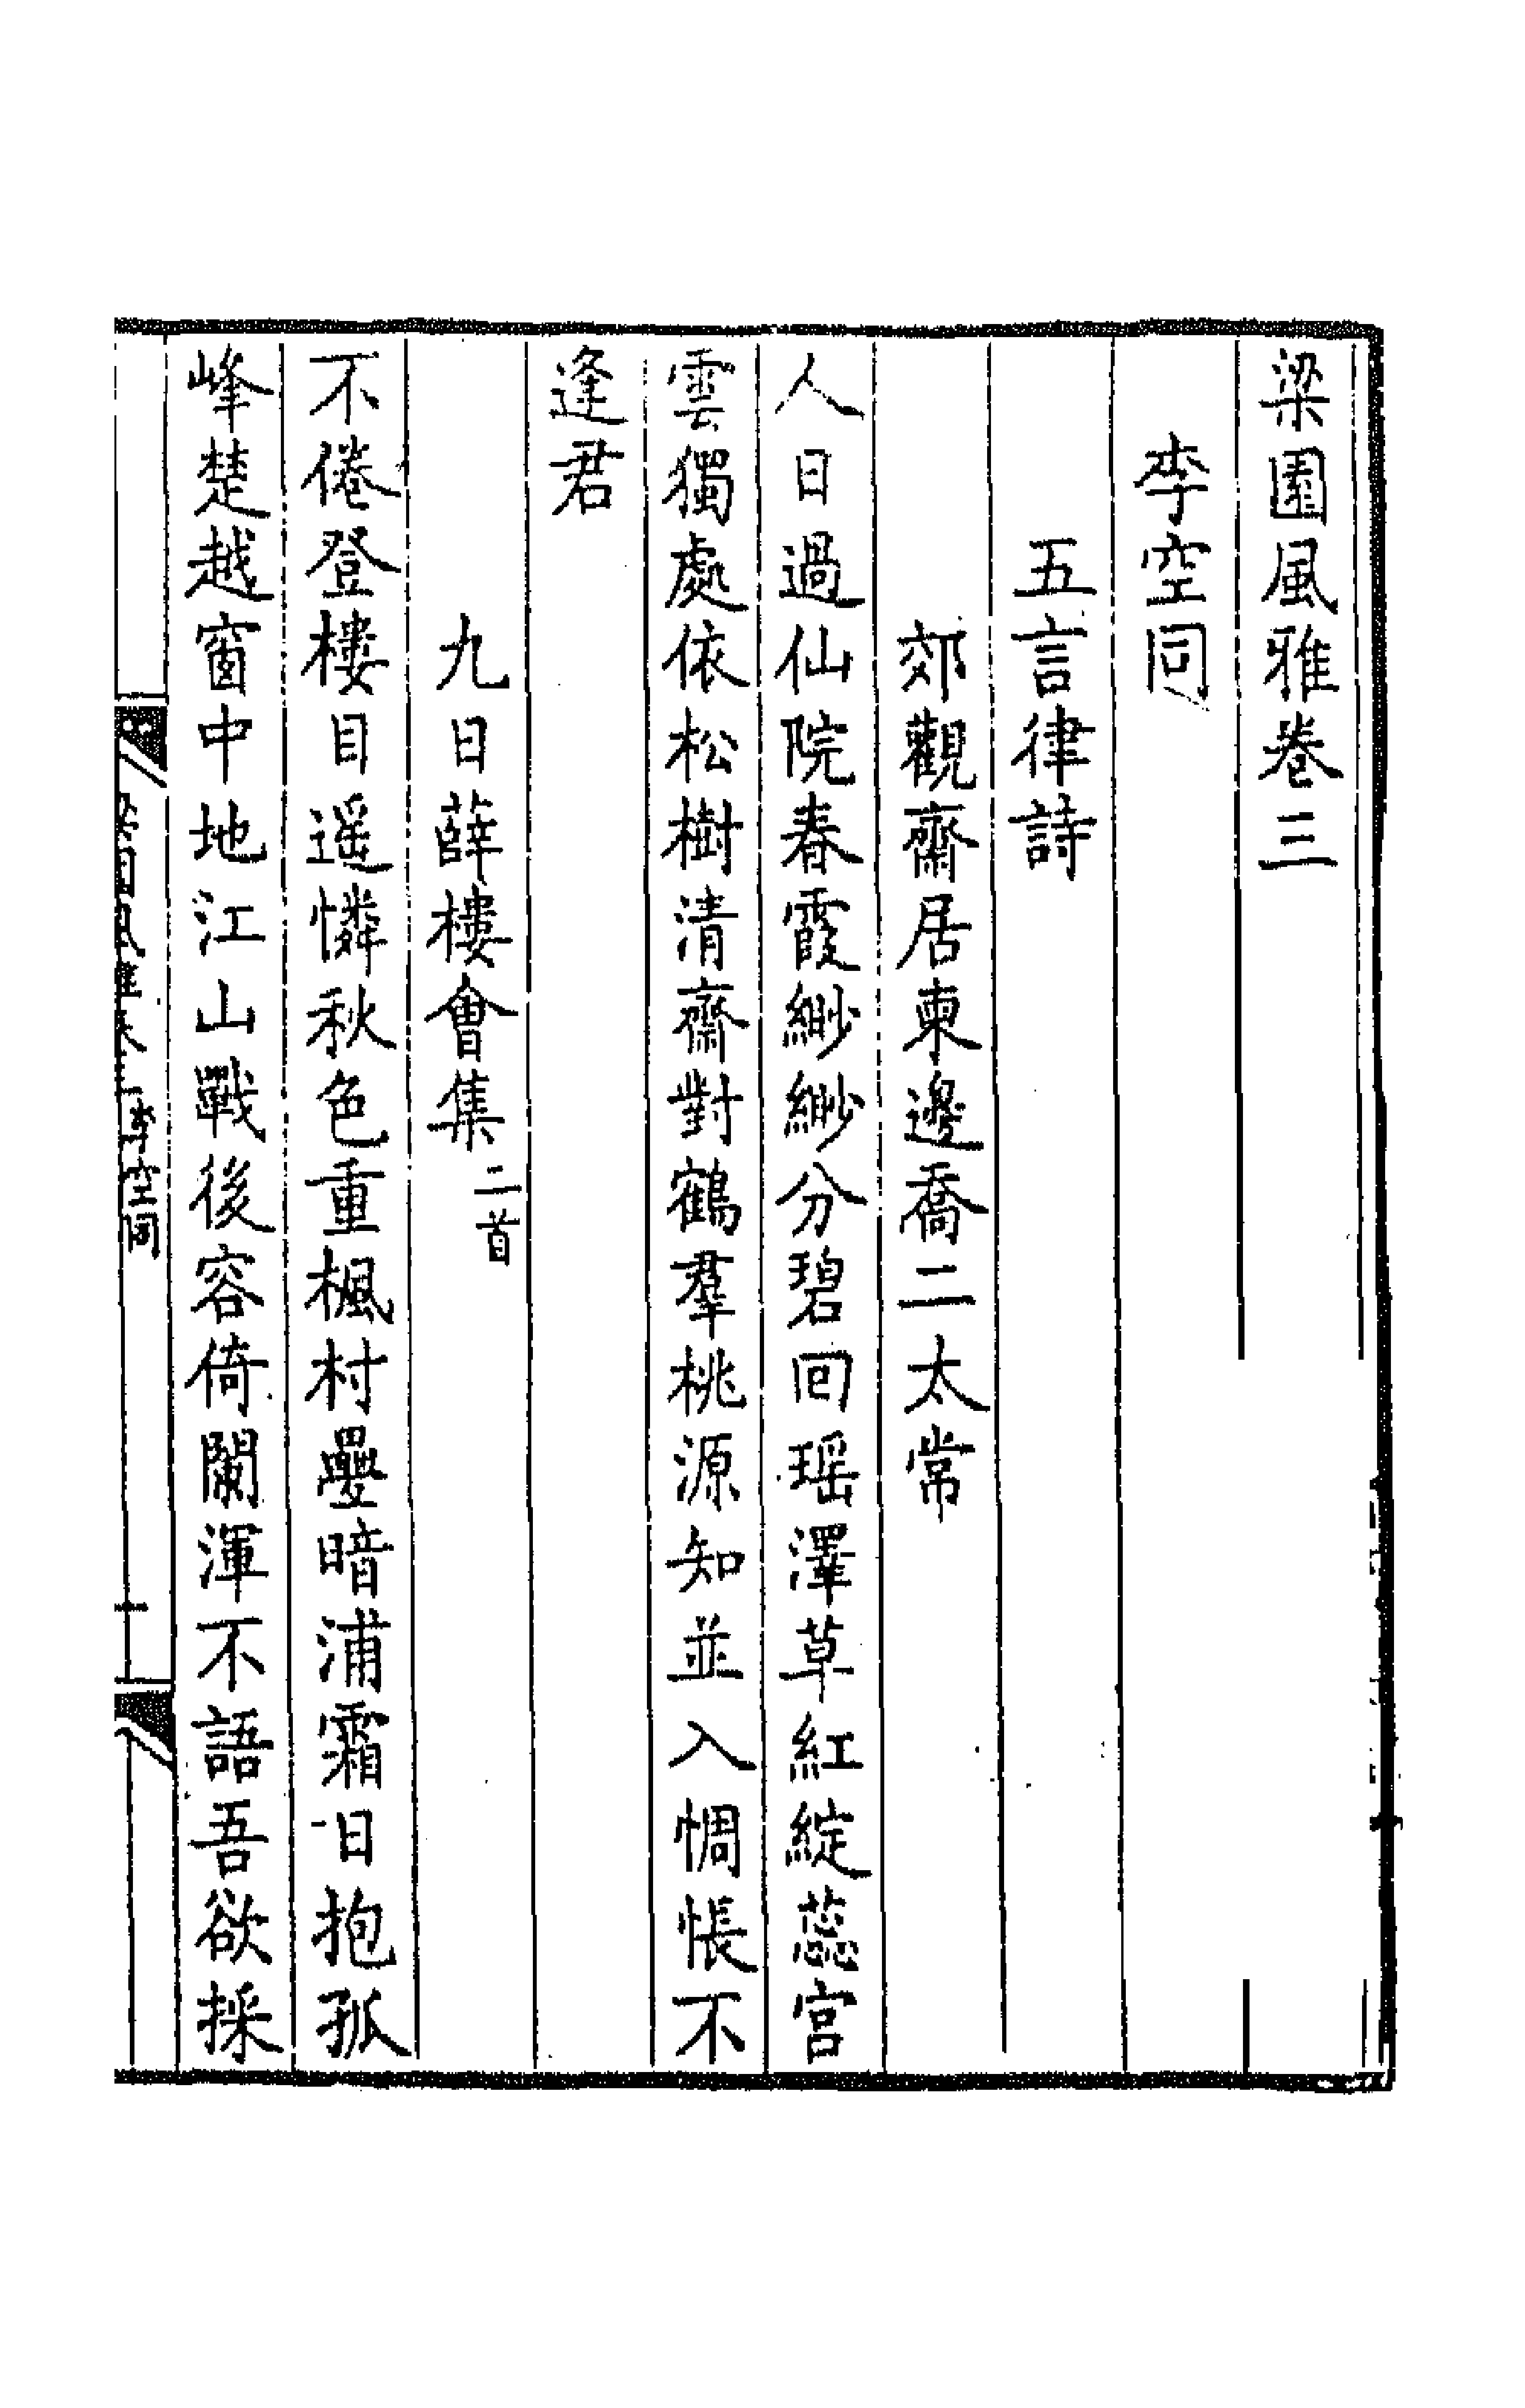 梁園風雅卷三
李空同
五言律詩
郊觀齋居柬邊喬二太常
人日過仙院春霞緲緲分碧回瑶澤草紅綻蕊宫
雲獨處依松樹清齋對鶴羣桃源知並入惆悵不
逢君
九日薛樓會集二首
不倦登樓目遥憐秋色重楓村壘暗浦霜日抱孤
峰楚越窗中地江山戰後容倚闌渾不語吾欲採
李空同